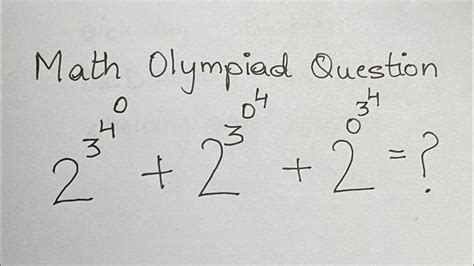 Math Olympiad Question
2^{3^{4^{0}}} + 2^{3^{0^{4}}} + 2^{0^{3^{4}}} = ?